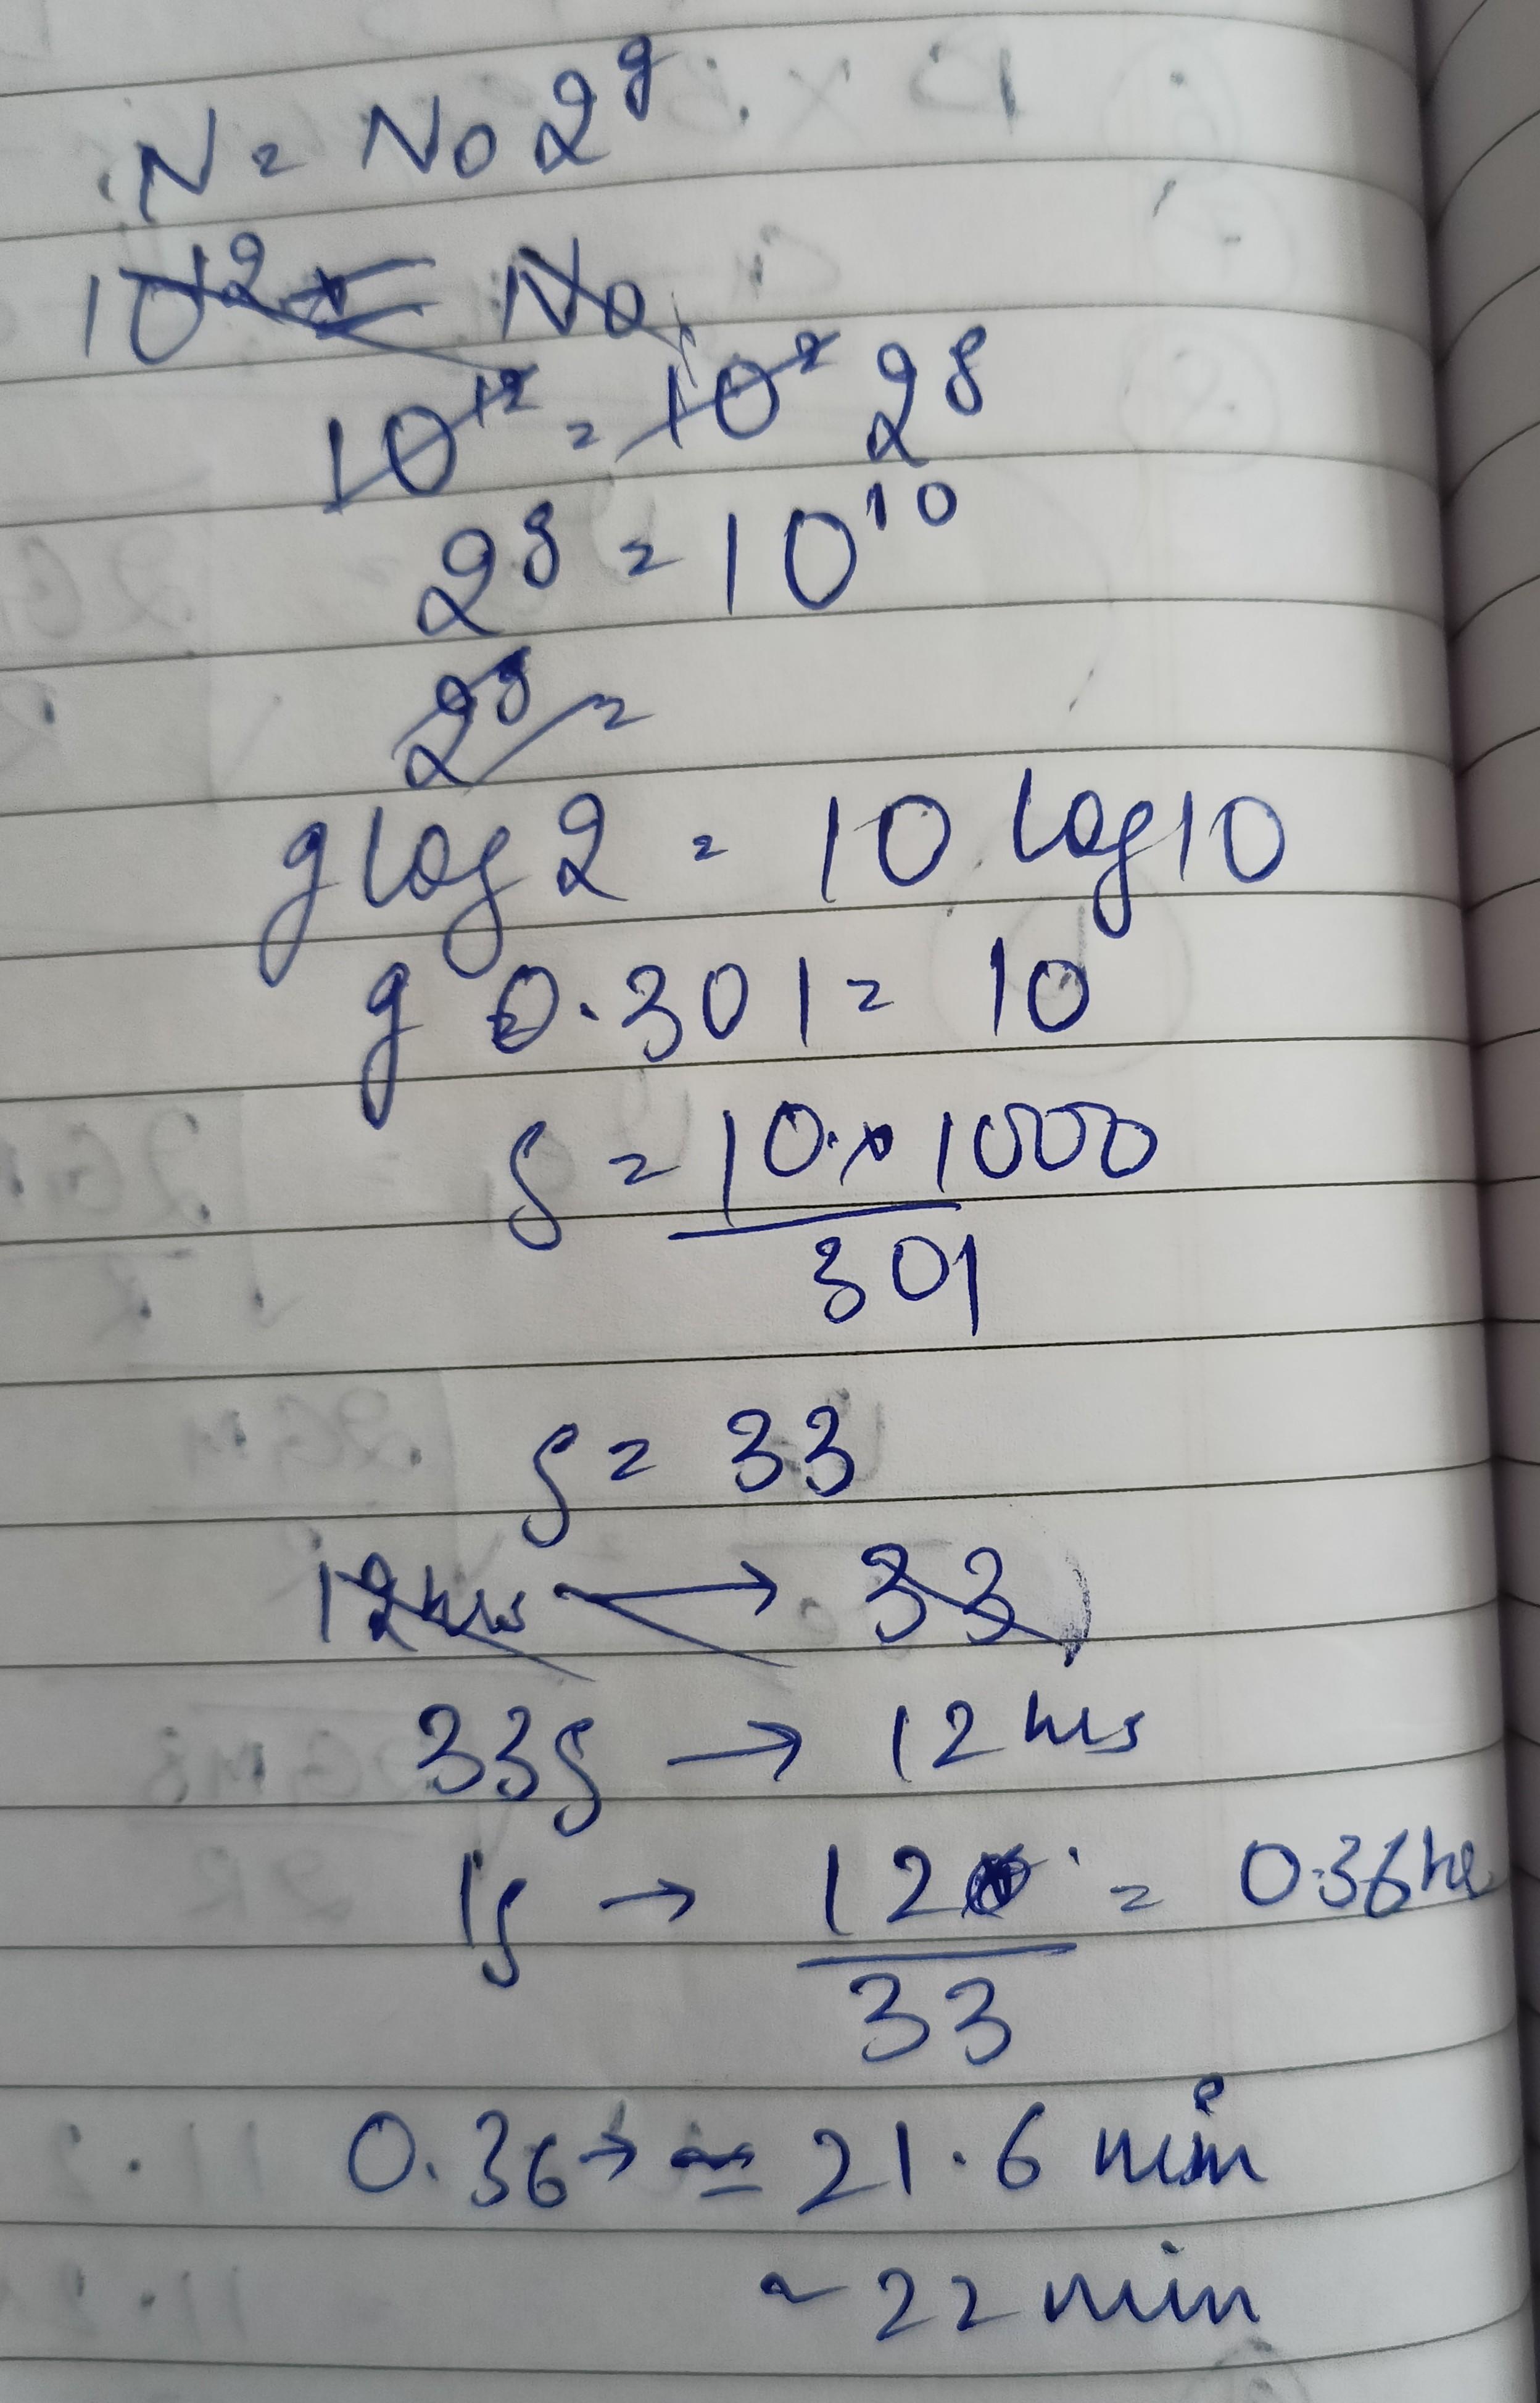 N = No 2^g
10^12 = No
10^12 = 10^2 2^g
2^g = 10^10
2^g =
g log 2 = 10 log 10
g 0.301 = 10
g = 10 x 1000
301
g = 33
12 hrs → 33
33g → 12 hrs
1g → 12 = 0.36 hr
33
0.36 → ≃ 21.6 min
~ 22 min